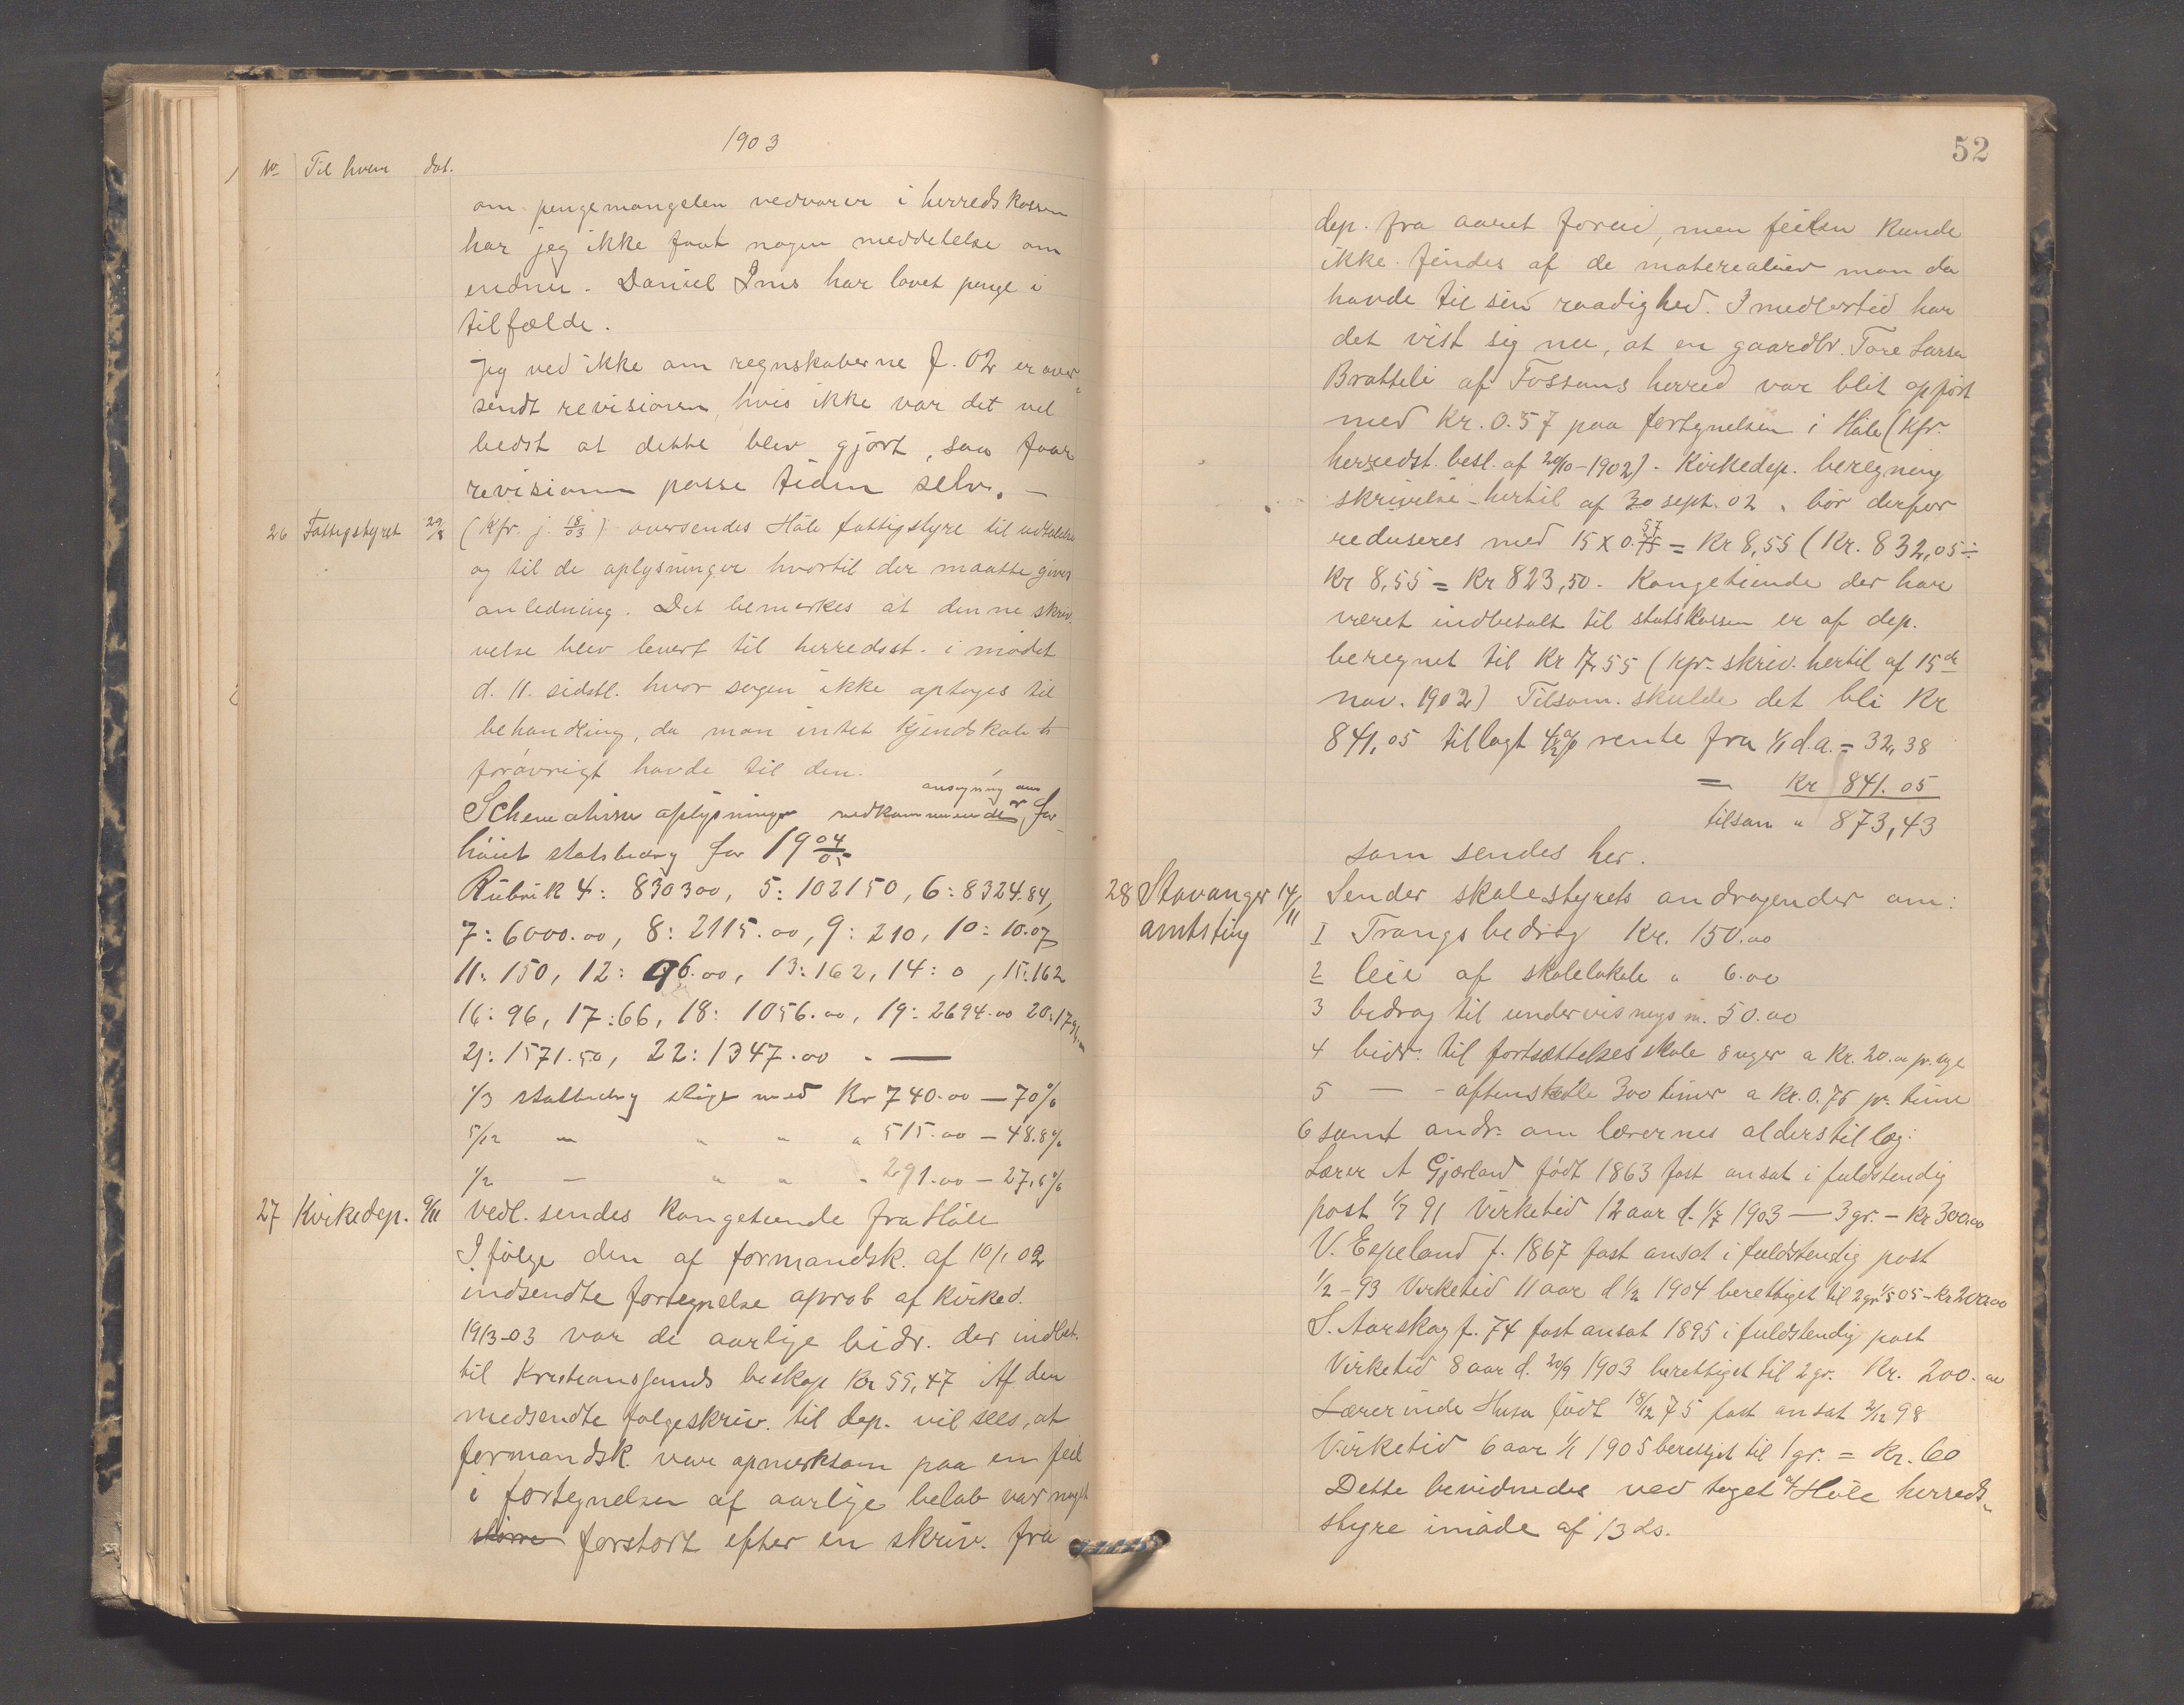 1903
No Til hvem dat.
om pengemangelen vedvarer i herredskassen
har jeg ikke faat nogen meddelelse om
endnu. Daniel Ims har lovet penge i
tilfælde.
Jeg ved ikke om regnskaberne f. 02 er over-
sendt revisionen, hvis ikke var det vel
bedst at dette blev gjort, saa faar
revisionen passe tiden selv. —
26 Fattigstyret 29/8 (Kfr. j. 18/03) oversendes Høle fattigstyre til udtalelse
og til de oplysninger hvortil der maatte gives
anledning. Det bemerkes at denne skri-
velse blev levert til herredsst. i mødet
d. 11. sidstl. hvor sagen ikke optages til
behandling, da man intet kjendskab
forøvrigt havde til den.
ansøgning om
Schematiske oplysninger vedkommende for-
høiet statsbidrag for 1904/05
Rubrik 4: 830300, 5: 102150, 6: 8324.84,
7: 6000.00, 8: 2115.00, 9: 210, 10: 10.07
11: 150, 12: 96.00, 13: 162, 14: 0, 15: 162
16: 96, 17: 66, 18: 1056.00, 19: 2694.00 20: 179
21: 1571.50, 22: 1347.00 . —
1/3 statsbidrag stige med Kr 740.00 — 70%
5/12 — " " " 515.00 — 48.8%
1/2 — " " " 291.00 — 27,6%
27 Kirkedep. 9/11 Vedl. sendes Kongetiende fra Høle
I følge den af formandsk. af 10/1 02
indsendte fortegnelse aprob af Kirked.
19/3-03 var de aarlige bidr. der indbet.
til Kristiansands beskop Kr 55,47 Af den
medsendte følgeskriv. til dep. vil sees, at
formandsk. var opmerksom paa en feil
i fortegnelsen af aarlige beløb var noget
større forstort efter en skriv. fra
52
dep. fra aaret forud, men feilen kunde
ikke findes af de materealier man da
havde til sin raadighed. Imedlertid har
det vist sig nu, at en gaardbr. Tore Larsen
Bratteli af Fossans herred var blit opført
med Kr. 0.57 paa fortegnelsen i Høle (Kfr.
herredst. besl. af 20/10-1902). Kirkedep. beregning
skrivelse hertil af 30 sept. 02. bør derfor
57
reduseres med 15 x 0.75 = Kr 8,55 (Kr. 832,05 ÷
Kr 8,55 = Kr 823,50. Kongetiende der har
været indbetalt til statskassen er af dep.
beregnet til Kr 17,55 (kfr. skriv. hertil af 15de
nov. 1902) Tilsam. skulde det bli Kr
841,05 tillagt 4 1/2 % rente fra 1/1 d.a. = 32,38
= Kr 841.05
tilsam " 873,43
som sendes her.
28 Stavanger 14/11 Sender skolestyrets andragender om:
amtsting
I Trangsbedrag Kr. 150.00
2 leie af skolelokale " 6.00
3 bedrag til undervisnings m. 50.00
4 bidr. til fortsættelsesskole 8 uger a Kr. 20.00 pr. uge
5 — - aftenskole 300 timer a Kr. 0.75 pr. time
6 samt andr. om lærernes alderstillæg:
Lærer A Gjørland født 1863 fast ansat i fuldstendig
post 1/7 91 Virketid 12 aar d. 1/7 1903 — 3 gr. - Kr 300.00
V. Espeland f. 1867 fast ansat i fuldstendig post
1/2-93 Virketid 11 aar d 1/2 1904 berettiget til 2 gr. 1/5 05 - Kr 200.00
S. Aarskog f. 74 fast ansat 1895 i fuldstendig post
Virketid 8 aar d. 20/9 1903 berettiget til 2 gr. Kr. 200.00
Lærerinde Husa født 18/12 75 fast ansat 2/12 98
Virketid 6 aar 1/1 1905 berettiget til 1 gr. = Kr. 60
Dette bevidnedes ved taget af Høle herreds-
styre i møde af 13 ds.